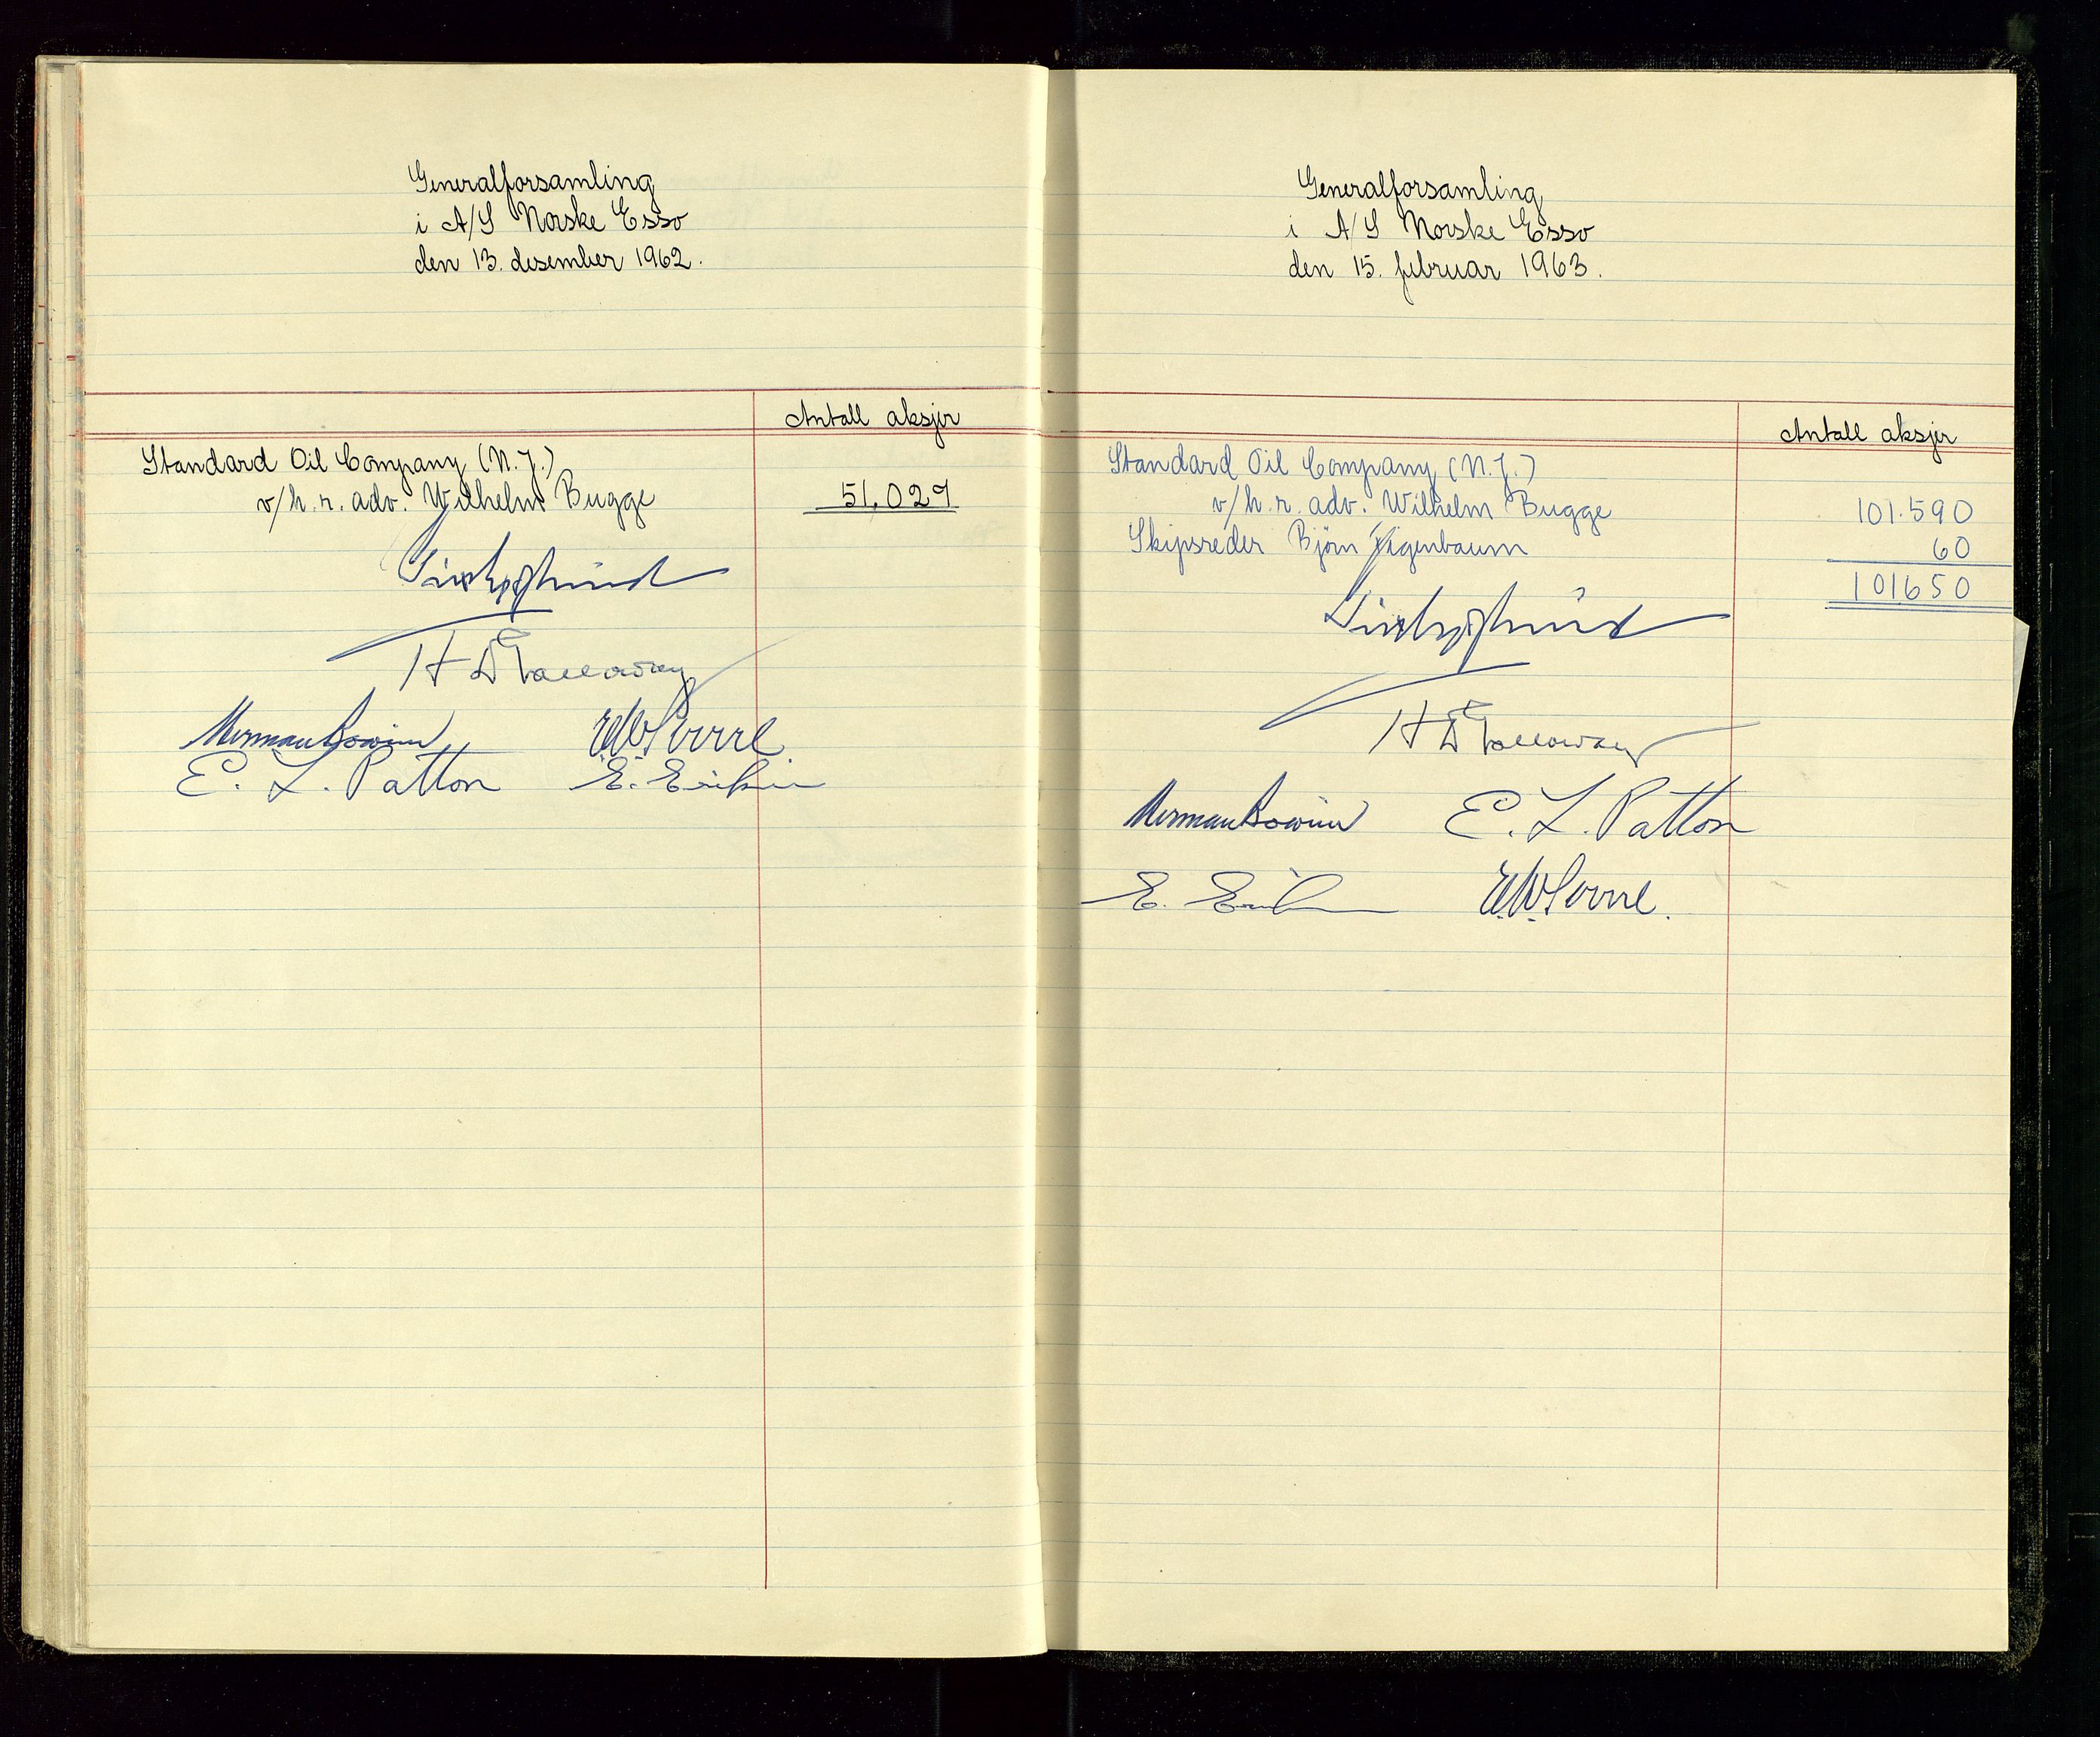 Generalforsamling
i A/S Norske Esso
den 13. desember 1962.
Antall aksjer
Standard Oil Company (N.J.)
v/h.r. adv. Wilhelm Bugge 51,029
H D Galloway
E. L. Patton
Generalforsamling
i A/S Norske Esso
den 15. februar 1963.
Antall aksjer
Standard Oil Company (N.J.)
v/h.r. adv. Wilhelm Bugge 101.590
Skipsreder Bjørn 60
101650
H D Galloway
E. L. Patton